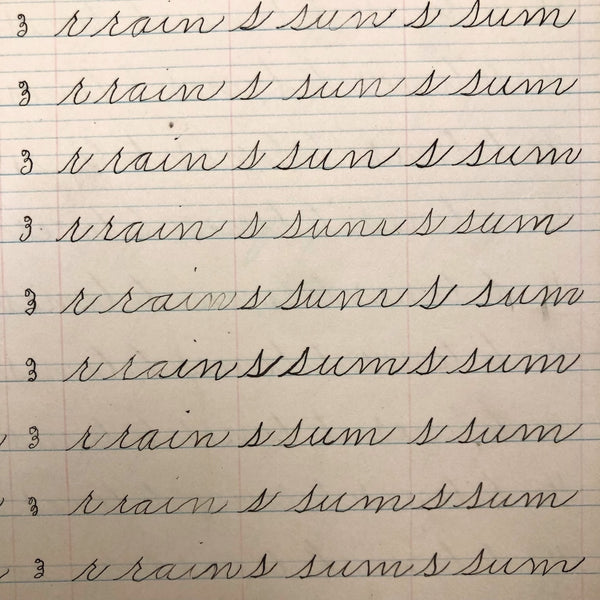 3 r rain s sun s sum
3 r rain s sun s sum
3 r rain s sun s sum
3 r rain s sum s sum
3 r rain s sum s sum
3 r rain s sum s sum
3 r rain s sum s sum
3 r rain s sum s sum
3 r rain s sum s sum